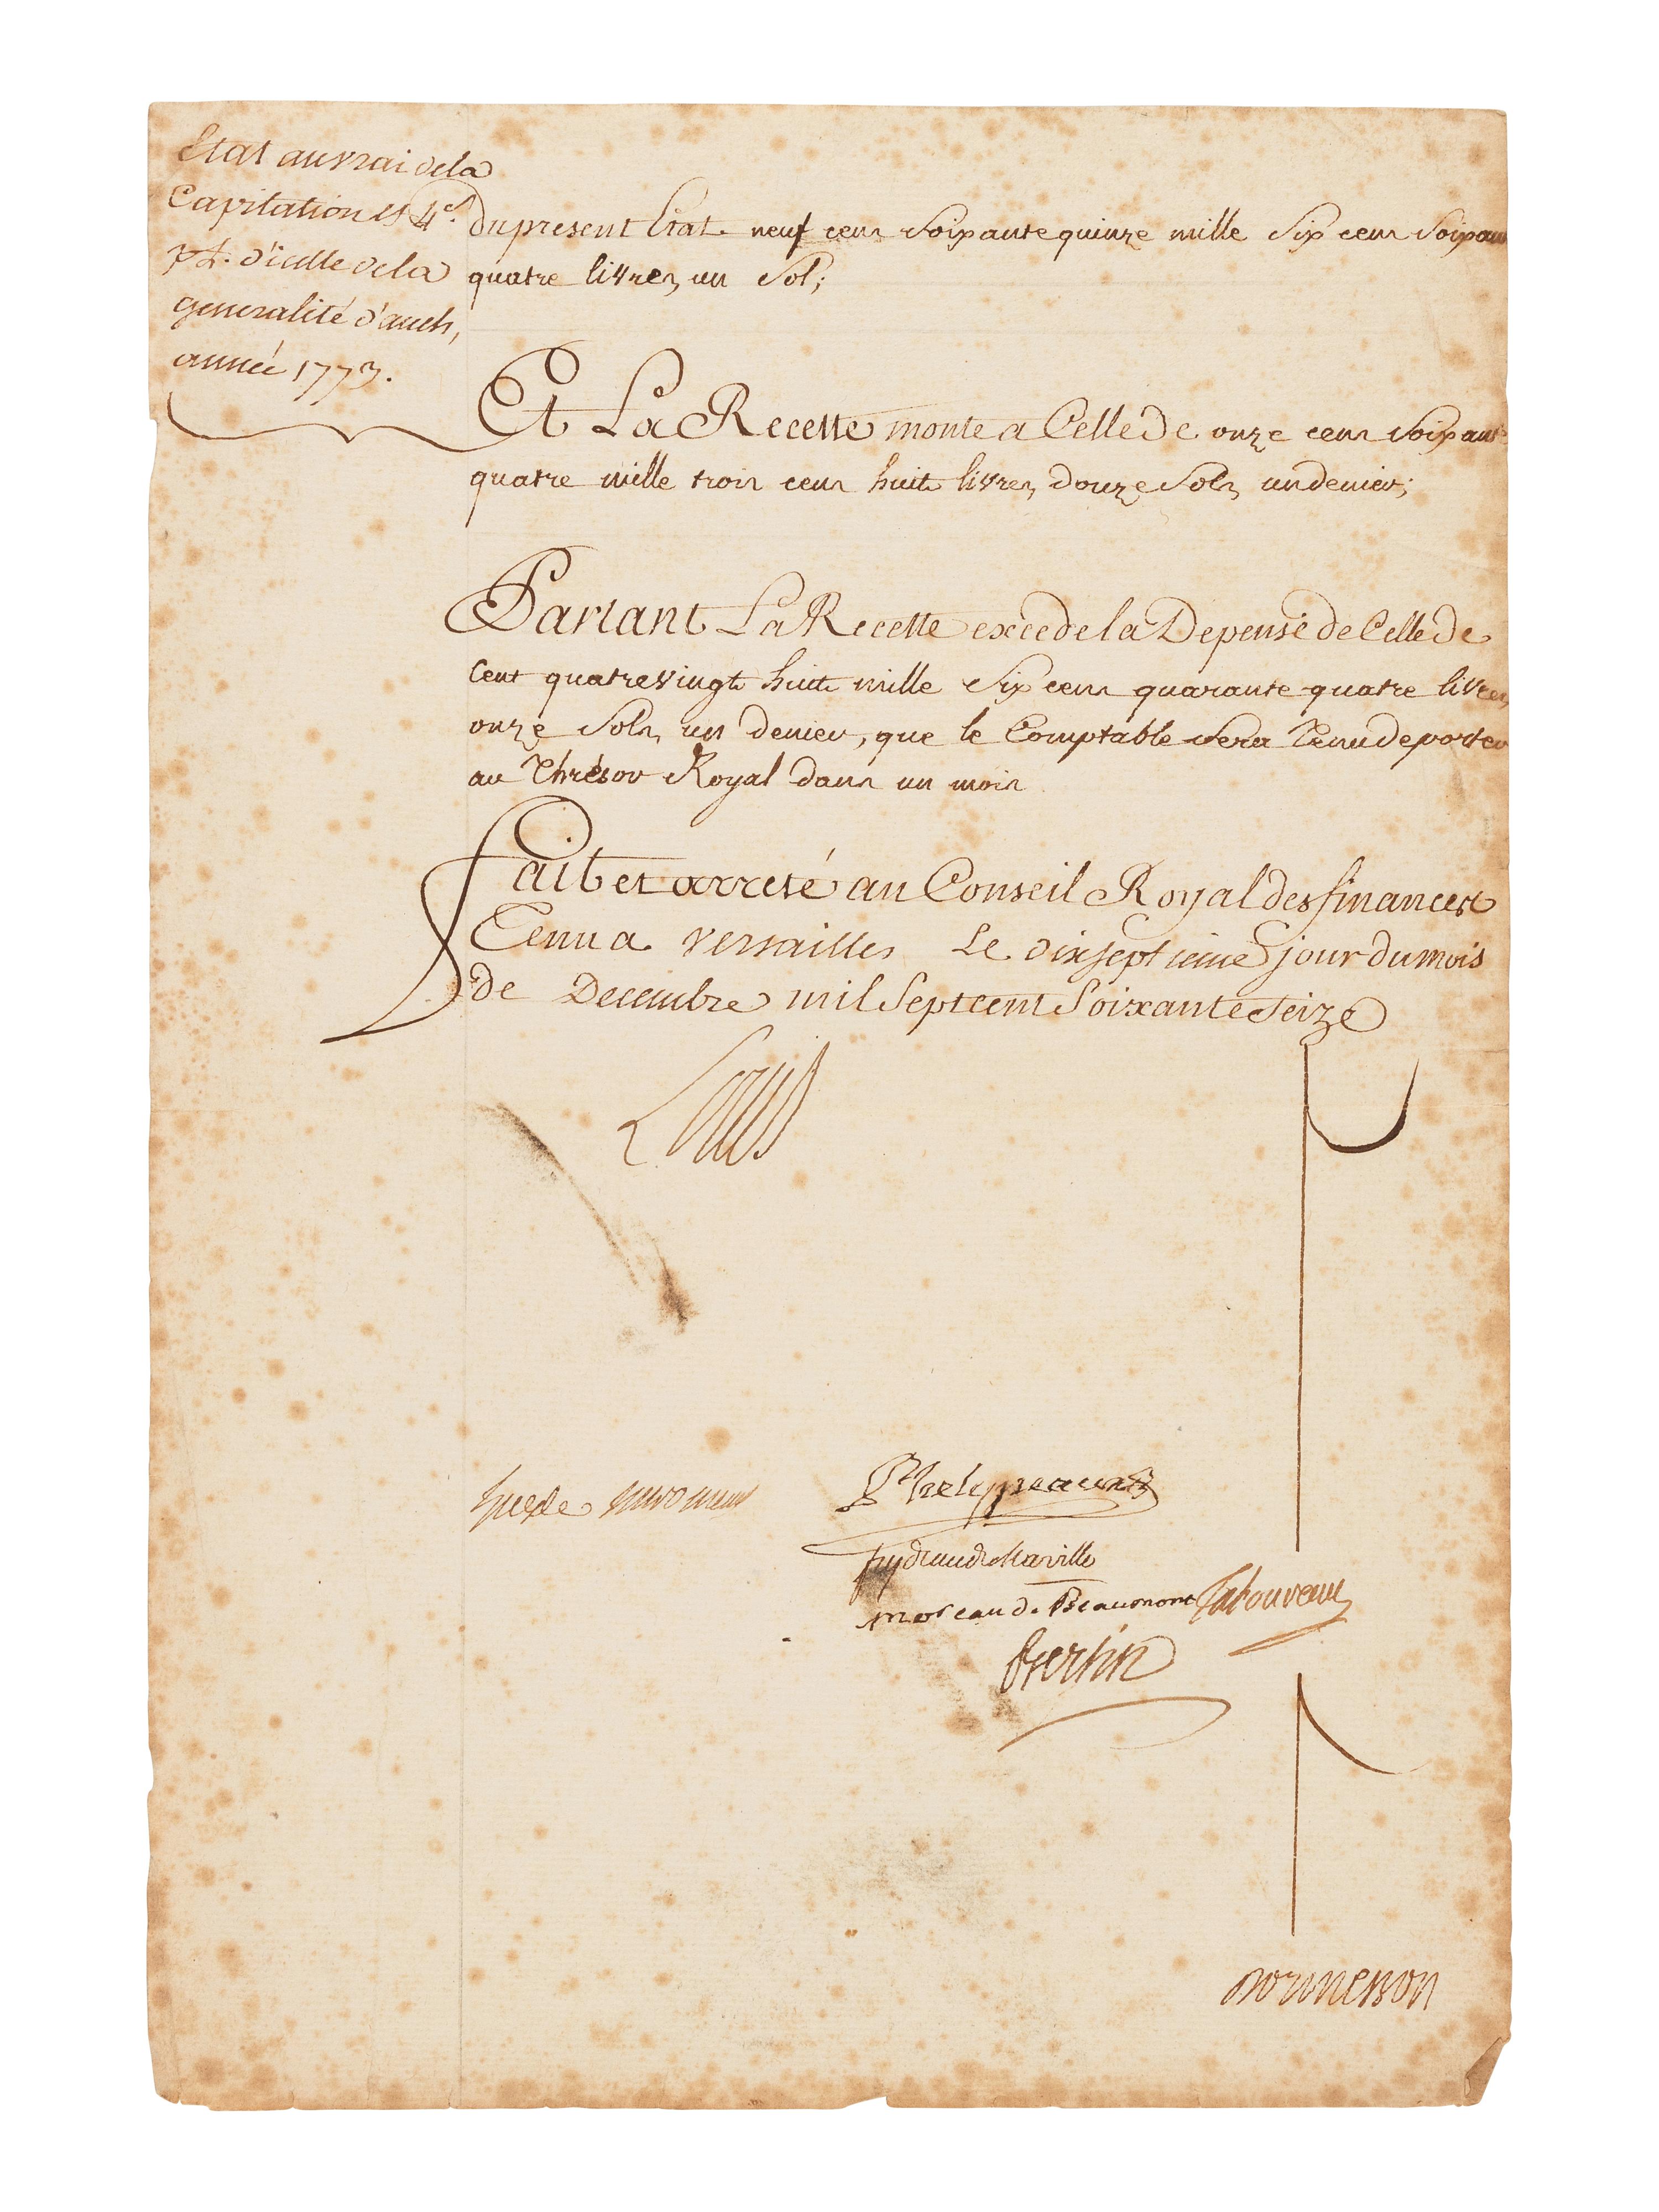 Etat au vrai de la
Capitation et 4 s.
p.r £. d'icelle de la
generalité d'auch,
année 1773.
du present Etat neuf cens soixante quinze mille six cens soixante
quatre livres un sol;
Et La Recette monte a Celle de onze cens soixante
quatre mille trois cens huit livres douze sols un denier;
Partant La Recette excede la Depense de Celle de
Cent quatre vingt huit mille six cens quarante quatre livres
onze sols un denier, que le Comptable sera Tenu de porter
au Thrésor Royal dans un mois
Fait et arreté au Conseil Royal des finances
Tenu a Versailles Le dix septieme jour du mois
de Decembre mil Sept cent Soixante Seize
Louis
hue de miromenil
Phelypeaux
feydeau de Marville
moreau de Beaumont Taboureau
Bertin
Dormesson